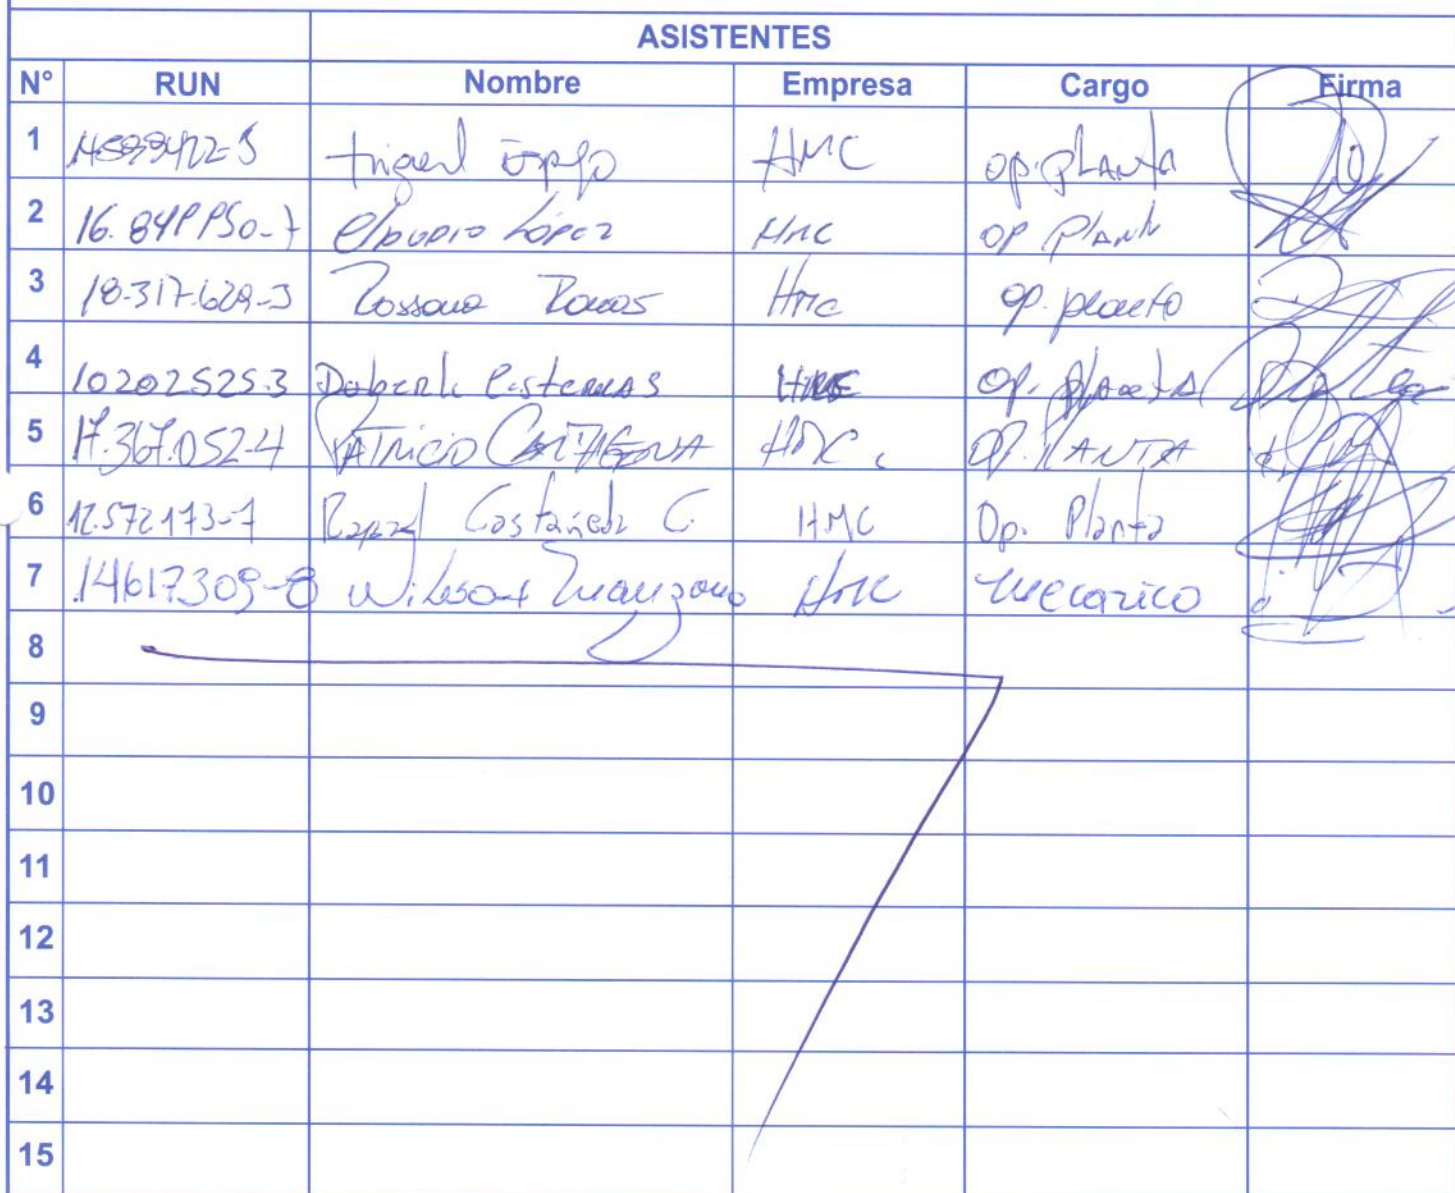 ASISTENTES
N° RUN Nombre Empresa Cargo Firma
1 Espejo HMC op. PLANTA
2 Claudio López HMC OP PLANTA
3 18.317.629-3 Rossana HMC op. planta
4 10202525-3 Cisternas HMC Op. planta
5 17.367.052-4 PATRICIO CARTAGENA HMC OP. PLANTA
6 12.572173-7 Rafael Castañeda C. HMC Op. Planta
7 14617309-8 Wilson Manzano HMC Mecanico
8
9
10
11
12
13
14
15